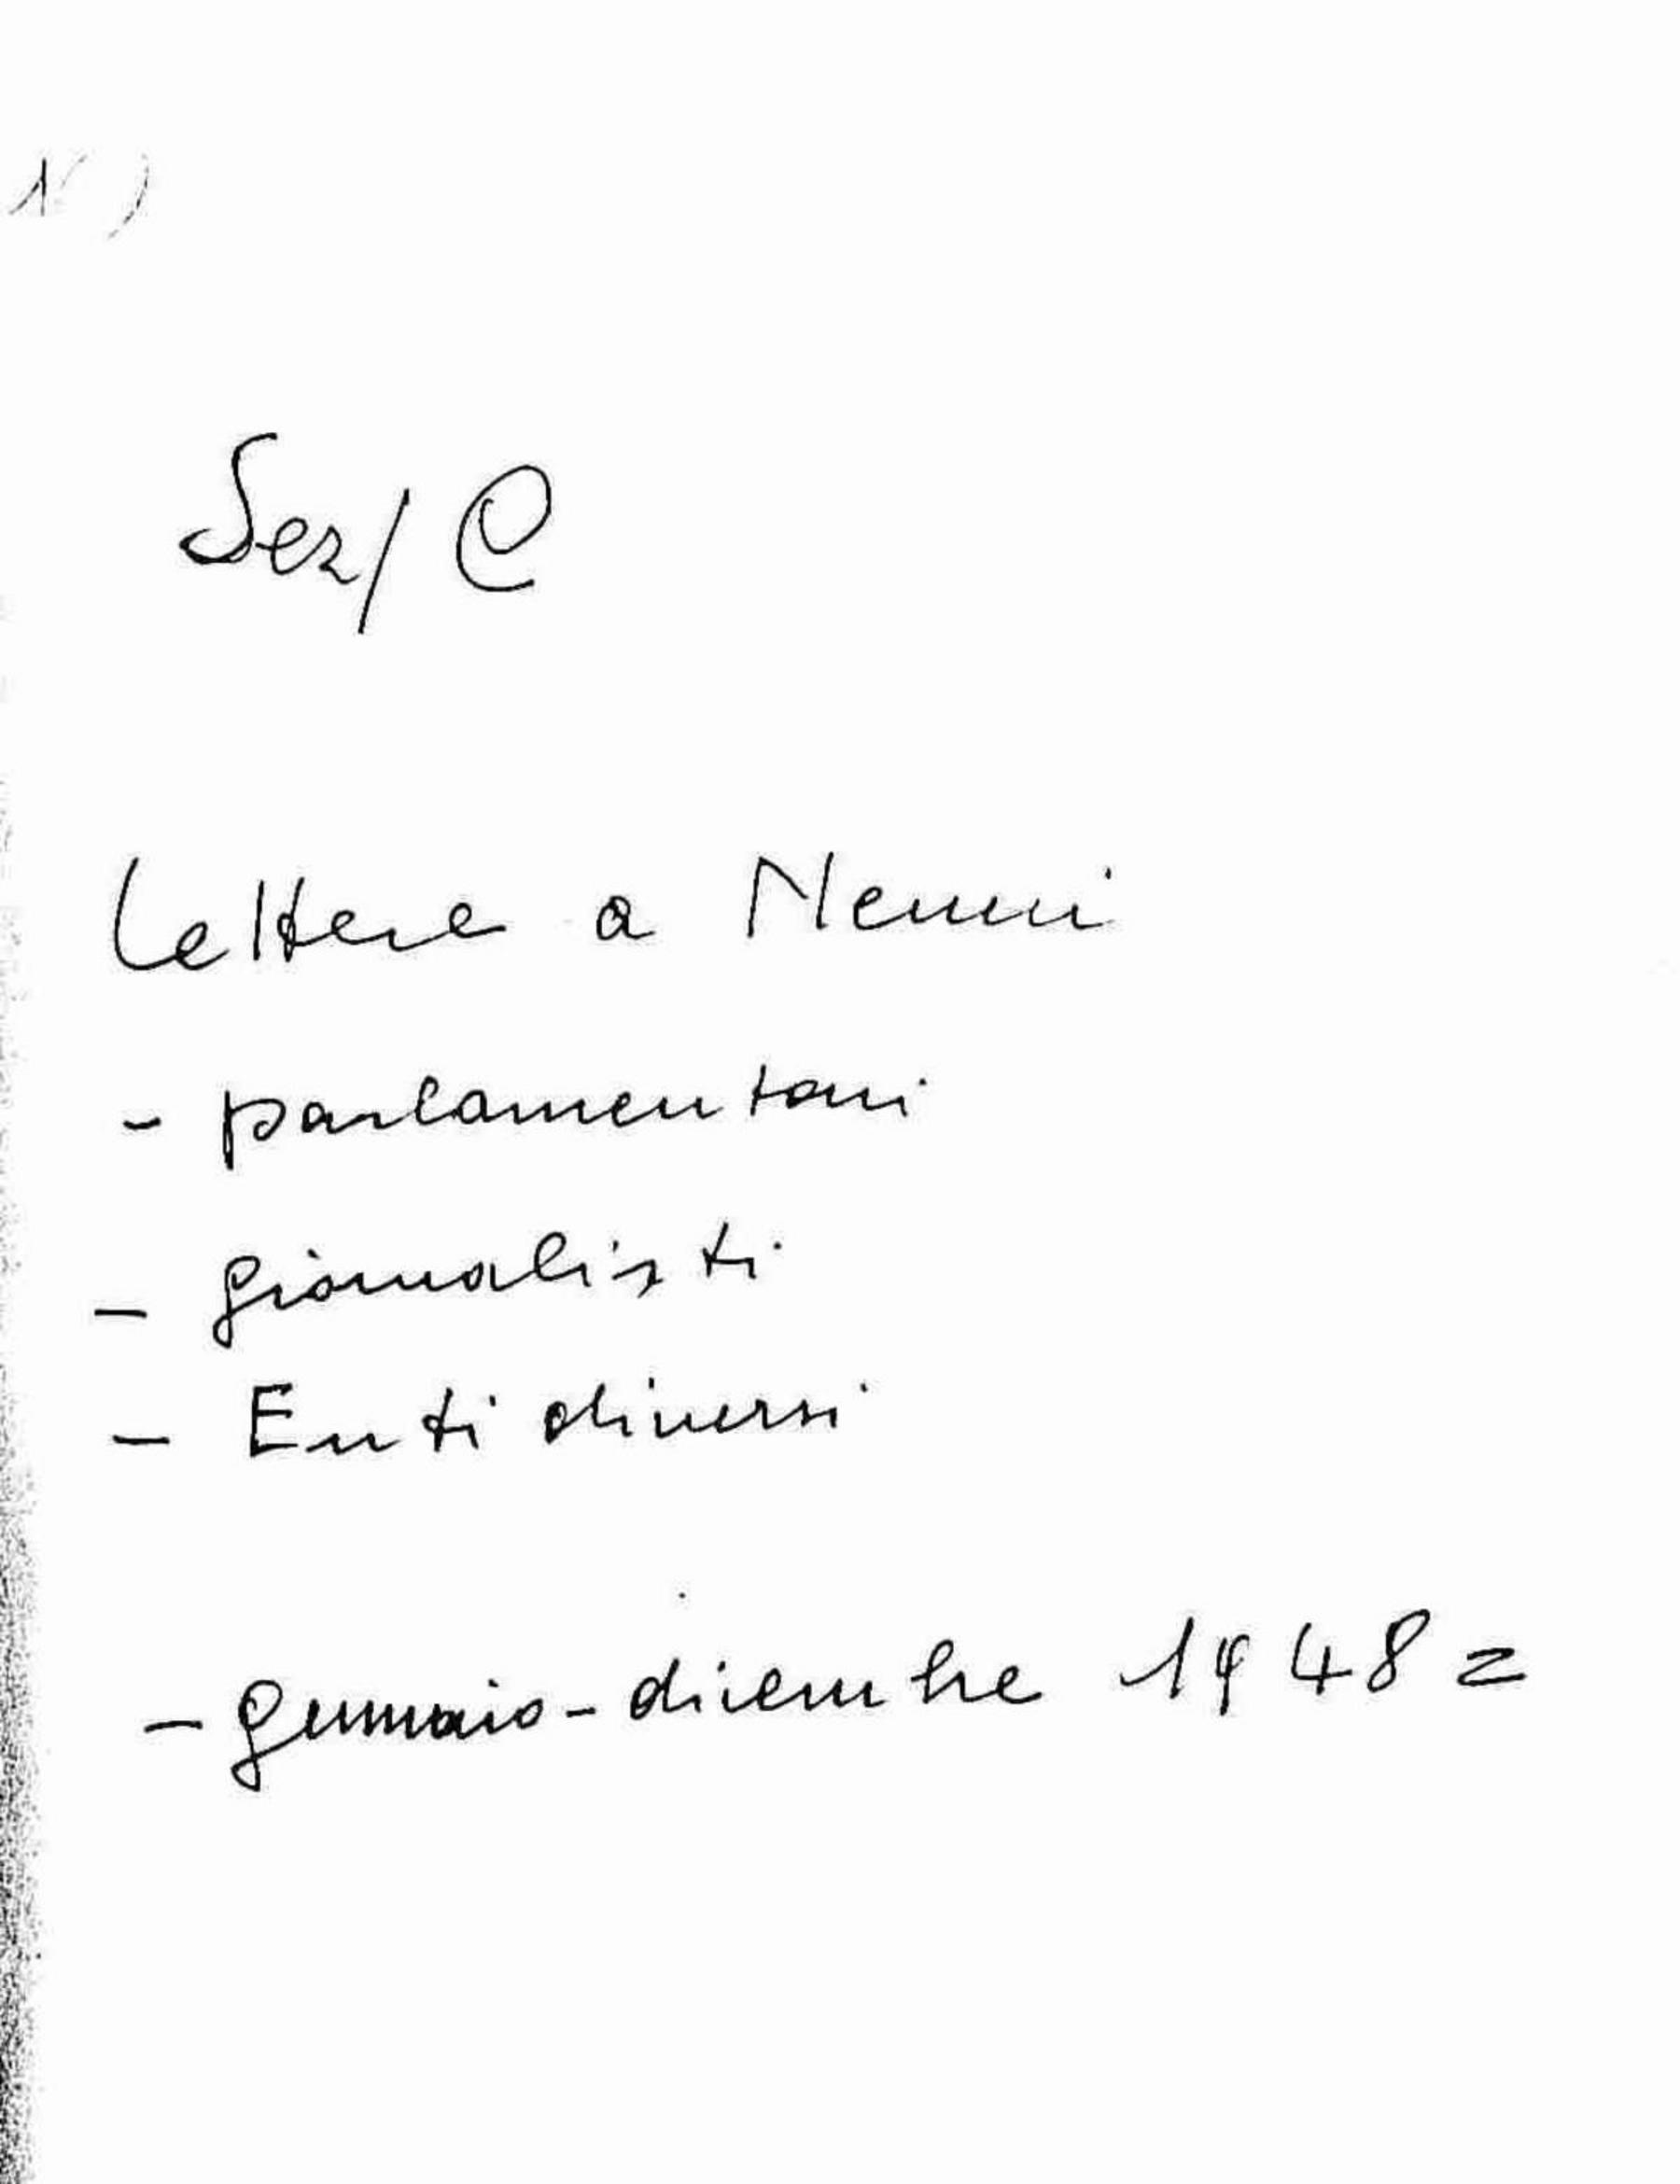 Sez/C
Lettere a Nenni
- parlamentari
- giornalisti
- Enti diversi
- gennaio-dicembre 1948 =